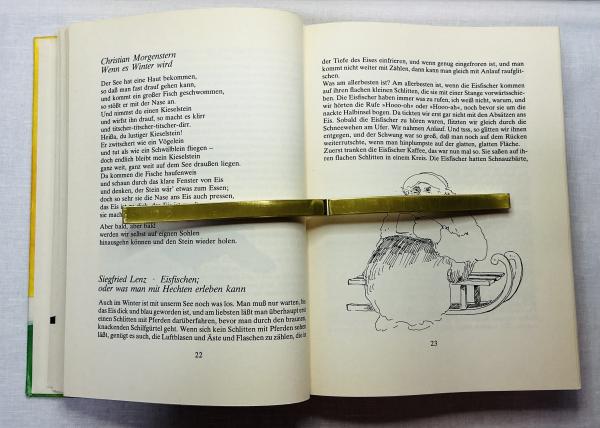 Christian Morgenstern
Wenn es Winter wird
Der See hat eine Haut bekommen,
so daß man fast drauf gehen kann,
und kommt ein großer Fisch geschwommen,
so stößt er mit der Nase an.
Und nimmst du einen Kieselstein
und wirfst ihn drauf, so macht es klirr
und titscher-titscher-titscher-dirr.
Heißa, du lustiger Kieselstein!
Er zwitschert wie ein Vögelein
und tut als wie ein Schwälblein fliegen –
doch endlich bleibt mein Kieselstein
ganz weit, ganz weit auf dem See draußen liegen.
Da kommen die Fische haufenweis
und schaun durch das klare Fenster von Eis
und denken, der Stein wär' etwas zum Essen;
doch so sehr sie die Nase ans Eis auch pressen,
das Eis ist
sie mach
Aber bald, aber bald
werden wir selbst auf eignen Sohlen
hinausgehn können und den Stein wieder holen.
Siegfried Lenz · Eisfischen;
oder was man mit Hechten erleben kann
Auch im Winter ist mit unserm See noch was los. Man muß nur warten, bis
das Eis dick und blau geworden ist, und am liebsten läßt man überhaupt erst
einen Schlitten mit Pferden darüberfahren, bevor man durch den braunen,
knackenden Schilfgürtel geht. Wenn sich kein Schlitten mit Pferden sehen
läßt, genügt es auch, die Luftblasen und Äste und Flaschen zu zählen, die in
22
der Tiefe des Eises einfrieren, und wenn genug eingefroren ist, und man
kommt nicht weiter mit Zählen, dann kann man gleich mit Anlauf raufglit-
schen.
Was am allerbesten ist? Am allerbesten ist, wenn die Eisfischer kommen
auf ihren flachen kleinen Schlitten, die sie mit einer Stange vorwärtsschie-
ben. Die Eisfischer haben immer was zu rufen, ich weiß nicht, warum, und
wir hörten die Rufe »Hooo-oh« oder »Hooo-ah«, noch bevor sie um die
nackte Halbinsel bogen. Da tickten wir erst gar nicht mit den Absätzen ans
Eis. Sobald die Eisfischer zu hören waren, flitzten wir gleich durch die
Schneewehen am Ufer. Wir nahmen Anlauf. Und tsss, so glitten wir ihnen
entgegen, und der Schwung war so groß, daß man noch auf dem Rücken
weiterrutschte, wenn man hinplumpste auf der glatten, glatten Fläche.
Zuerst tranken die Eisfischer Kaffee, das war nun mal so. Sie saßen auf ih-
ren flachen Schlitten in einem Kreis. Die Eisfischer hatten Schnauzbärte,
23